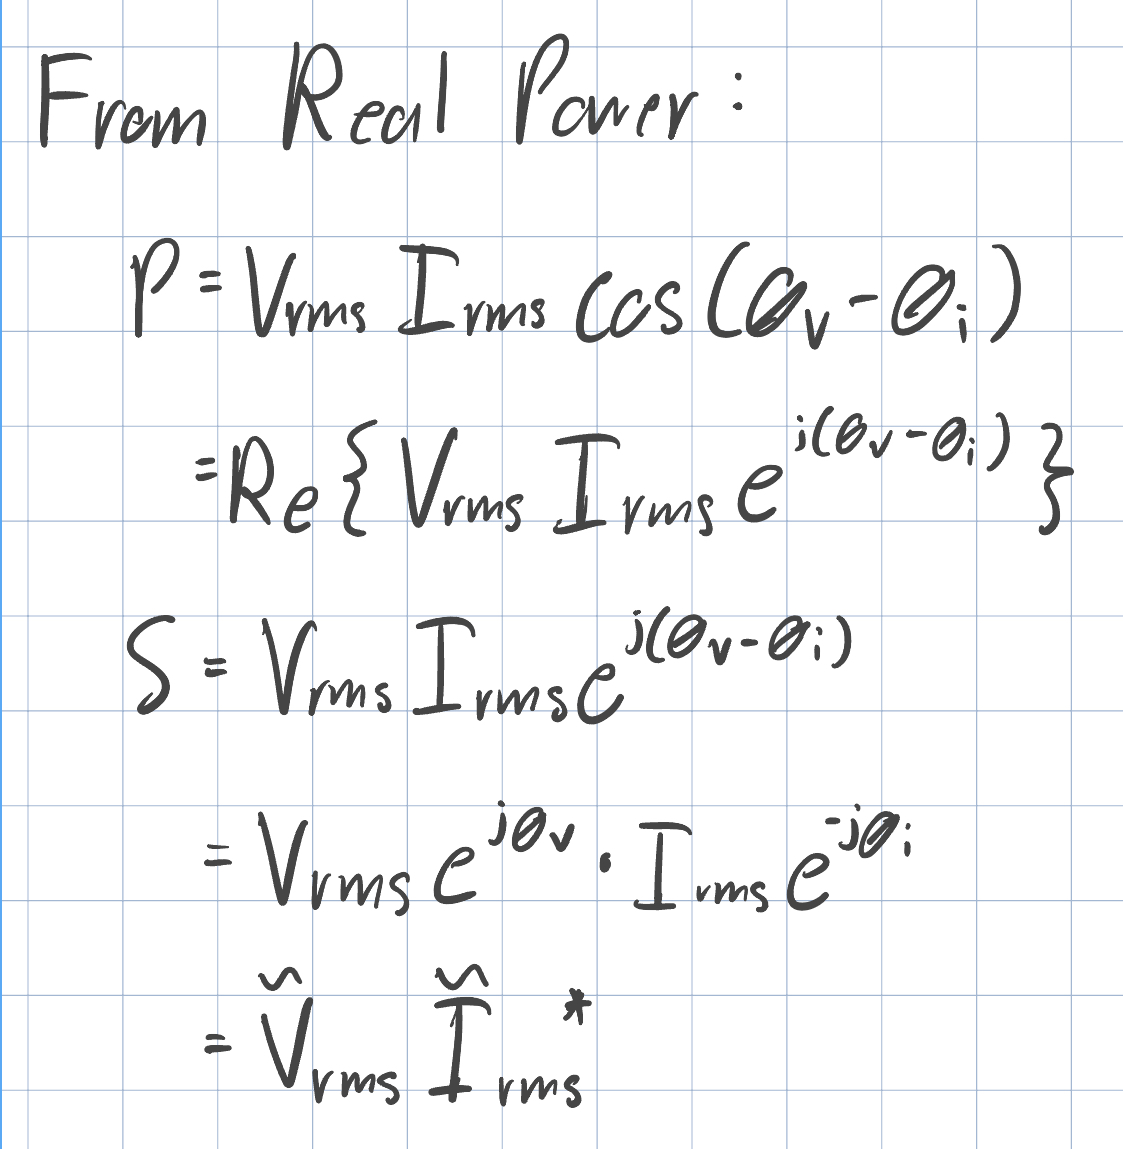 From Real Power:
P = V_rms I_rms cos(θ_v - θ_i)
= Re{ V_rms I_rms e^{j(θ_v - θ_i)} }
S = V_rms I_rms e^{j(θ_v - θ_i)}
= V_rms e^{jθ_v} · I_rms e^{-jθ_i}
= Ṽ_rms Ĩ_rms^*